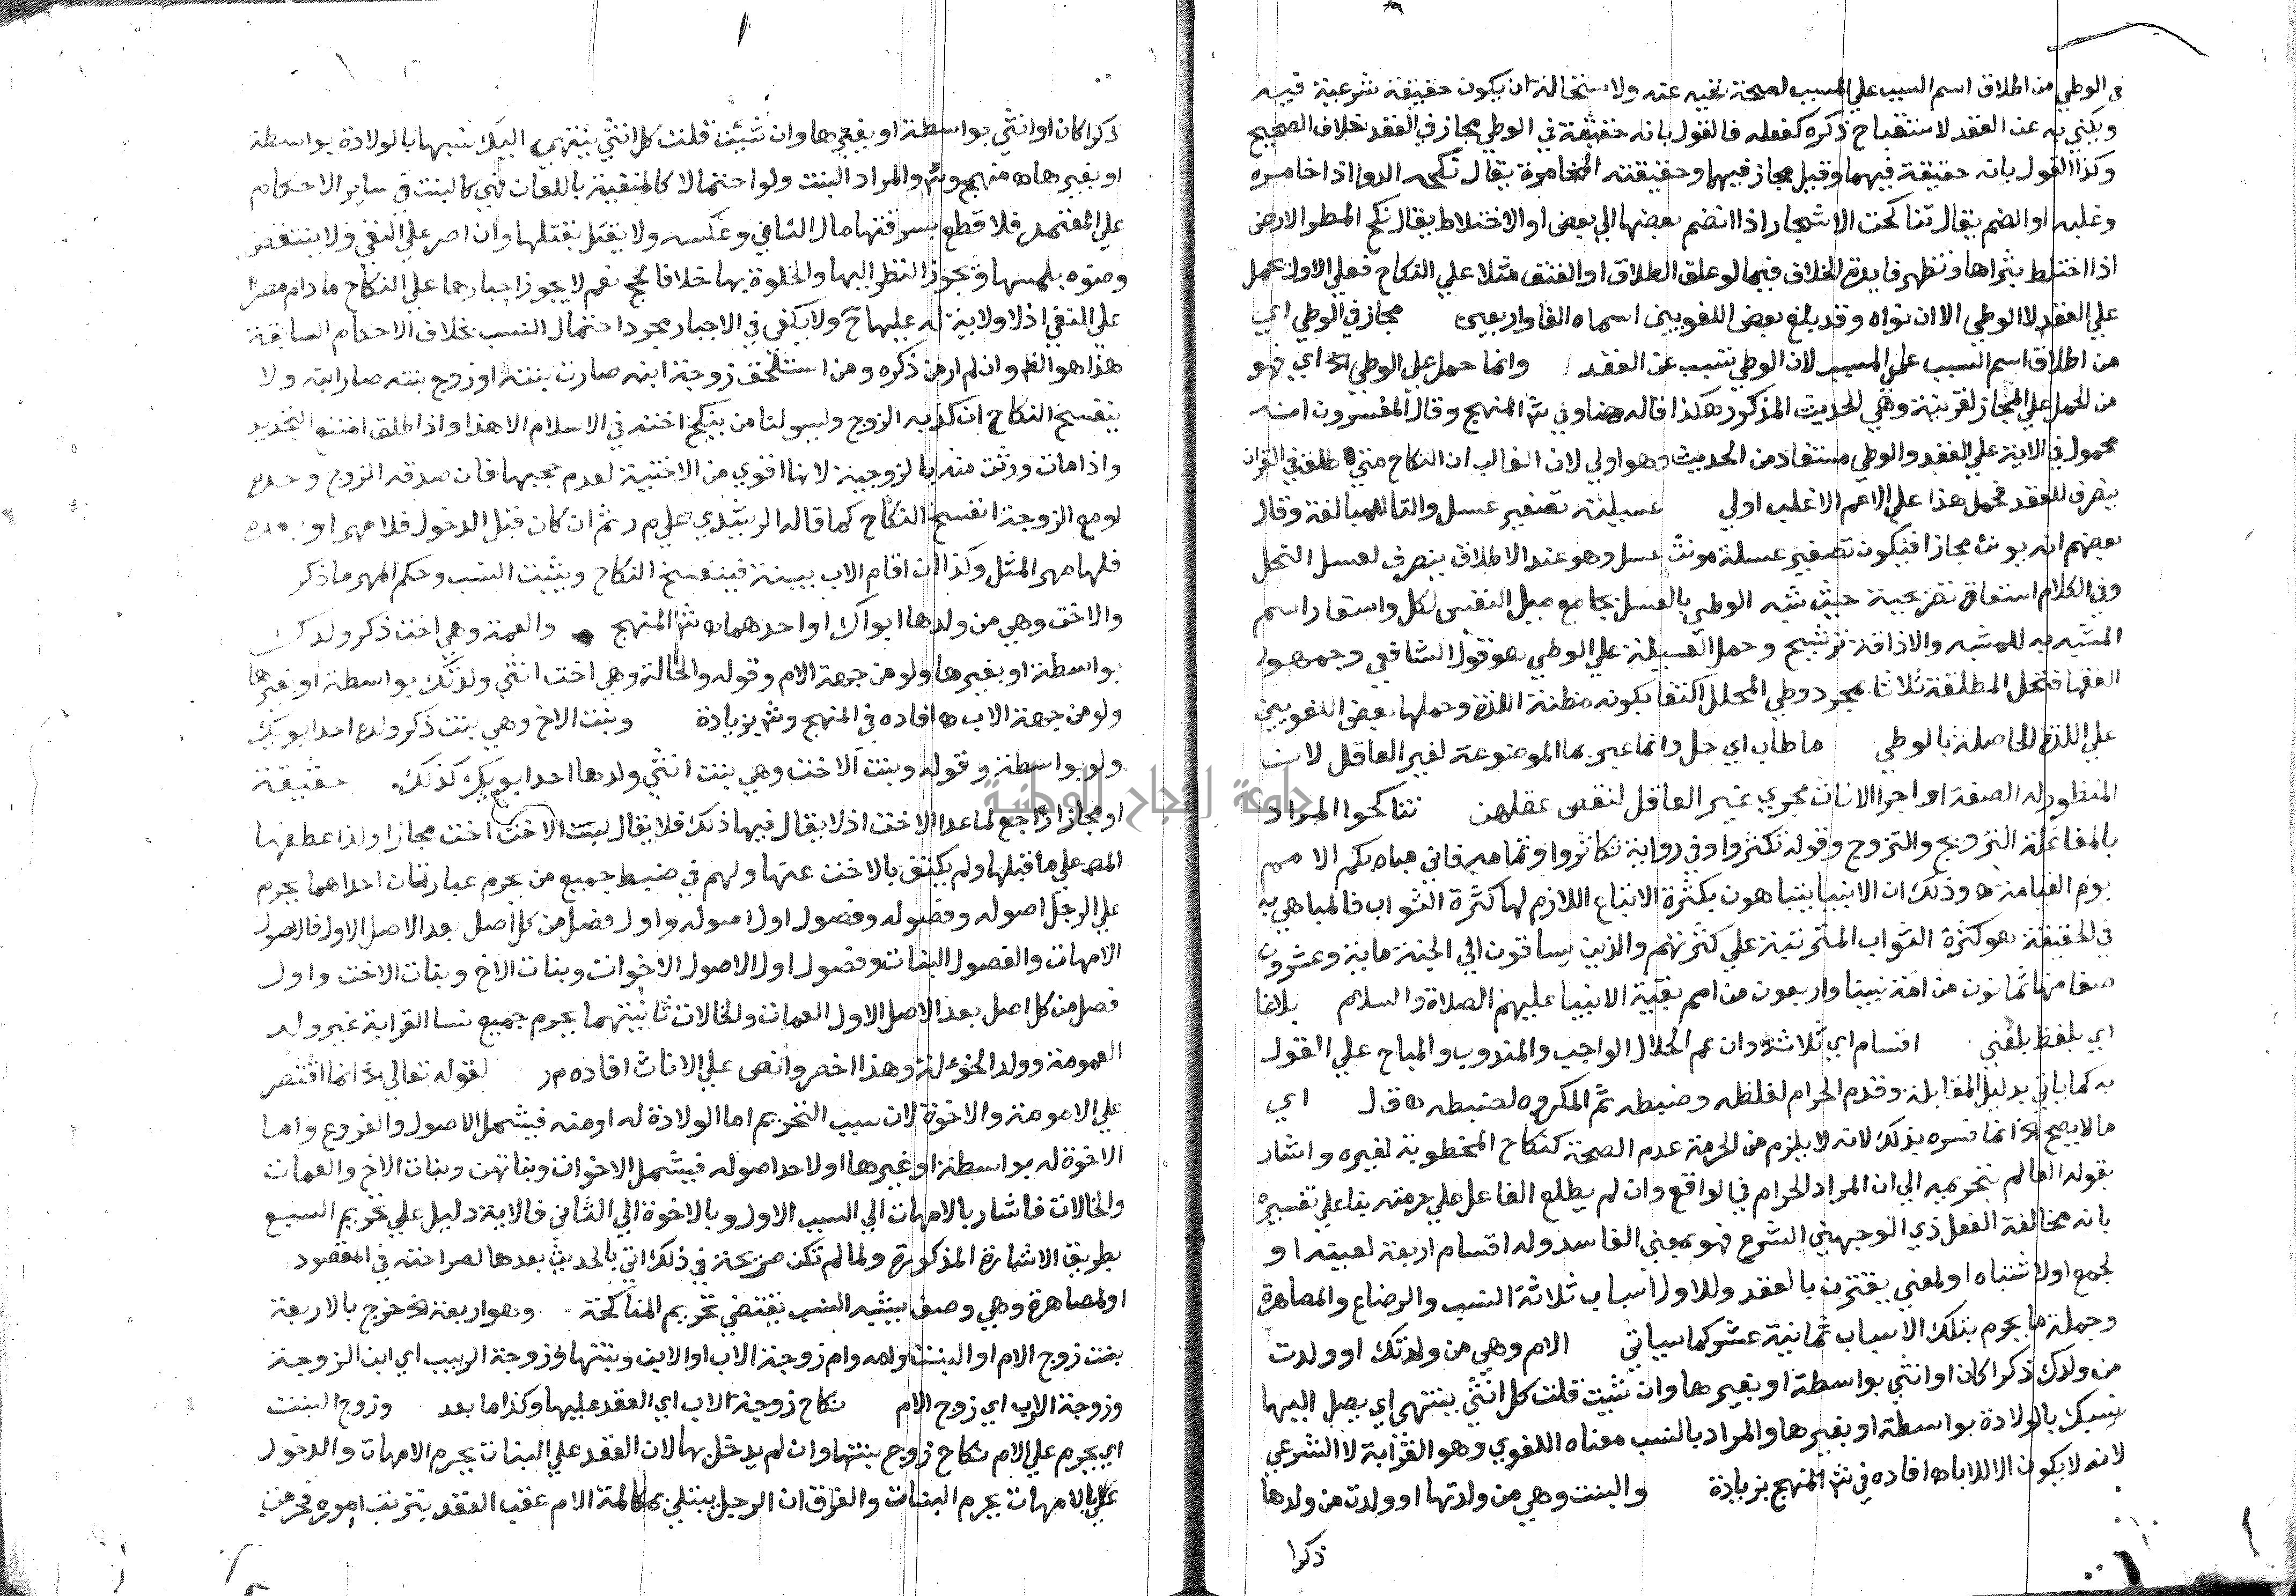 في الوطي من اطلاق اسم السبب علي المسبب لصحة نفيه عنه ولاستحالة ان يكون حقيقة شرعية فيه
ويكني به عن العقد لاستقباح ذكره كفعله فالقول بانه حقيقة في الوطي مجاز في العقد خلاف الصحيح
وكذا القول بانه حقيقة فيهما وقيل مجاز فيهما وحقيقته المخامرة يقال نكحه الدوا اذا خامره
وغلبه او الضم يقال تناكحت الاشجار اذا انضم بعضها الي بعض او الاختلاط يقال نكح المطر الارض
اذا اختلط بثراها وتظهر فايدة الخلاف فيما لو علق الطلاق او العتق مثلا علي النكاح فعلي الاول يحمل
علي العقد لا الوطي الا ان نواه وقد بلغ بعض اللغويين اسماه الفا واربعين مجاز في الوطي اي
من اطلاق اسم السبب علي المسبب لان الوطي تسبب عن العقد وانما حمل علي الوطي الخ اي فهو
من الحمل علي المجاز لقرينة وهي الحديث المذكور هكذا قاله هنا وفي ش المنهج وقال المفسرون انه
محمول في الاية علي العقد والوطي مستفاد من الحديث وهو اولي لان الغالب ان النكاح متي اطلق في القران
ينصرف للعقد فحمل هذا علي الاعم الاغلب اولي عسيلته تصغير عسل والتا للمبالغة وقال
بعضهم انه يونث مجازا فيكون تصغير عسلة مونث عسل وهو عند الاطلاق ينصرف لعسل النحل
وفي الكلام استعارة تصريحية حيث شبه الوطي بالعسل بجامع ميل النفس لكل واستعار اسم
المشبه به للمشبه والاذاقة ترشيح وحمل العسيلة علي الوطي هو قول الشافعي وجمهور
الفقها فتحل المطلقة ثلاثا بمجرد وطي المحلل اكتفا بكونه مظنة اللذة وحملها بعض اللغويين
علي اللذة الحاصلة بالوطي ما طاب اي حل وانما عبر بما الموضوعة لغير العاقل لان
المنظور له الصفة او اجرا الاناث مجري غير العاقل لنقص عقلهن تناكحوا المراد
بالمفاعلة التزويج والتزوج وقوله تكثروا وفي رواية تكاثروا وتمامه فاني مباه بكم الامم
يوم القيامة ه وذلك ان الانبيا يتباهون بكثرة الاتباع اللازم لها كثرة الثواب فالمباهي به
في الحقيقة هو كثرة الثواب المترتبة علي كثرتهم والذين يساقون الي الجنة ماية وعشرون
صفا منها ثمانون من امة نبينا واربعون من امم بقية الانبيا عليهم الصلاة والسلام بلاغا
اي بلفظ بلغني اقسام اي ثلاثة وان عم الحلال الواجب والمندوب والمباح علي القول
به كما ياتي بدليل المقابلة وقدم الحرام لغلظه وضبطه ثم المكروه لضبطه ه ق ل اي
ما لا يصح الخ انما فسره بذلك لانه لا يلزم من الحرمة عدم الصحة كنكاح المخطوبة لغيره واشار
بقوله العالم بتحريمه الي ان المراد الحرام في الواقع وان لم يطلع الفاعل علي حرمته بنا علي تفسيره
بانه مخالفة الفعل ذي الوجهين الشرع فهو بمعني الفاسد وله اقسام اربعة لعينه او
لجمع او لاشتباه او لمعني يقترن بالعقد وللاول اسباب ثلاثة النسب والرضاع والمصاهرة
وجملة ما يحرم بتلك الاسباب ثمانية عشر كما سياتي الام وهي من ولدتك او ولدت
من ولدك ذكرا كان او انثي بواسطة او بغيرها وان شيت قلت كل انثي ينتهي اي يصل اليها
نسبك بالولادة بواسطة او بغيرها والمراد بالنسب معناه اللغوي وهو القرابة لا الشرعي
لانه لا يكون الا للابا ه افاده في ش المنهج بزيادة والبنت وهي من ولدتها او ولدت من ولدها
ذكرا
ذكرا كان او انثي بواسطة او بغيرها وان شئت قلت كل انثي ينتهي اليك نسبها بالولادة بواسطة
او بغيرها ه منهج وش والمراد البنت ولو احتمالا كالمنفية باللعان فهي كالبنت في ساير الاحكام
علي المعتمد فلا قطع بسرقتها مال النافي وعكسه ولا يقتل بقتلها وان اصر علي النفي ولا ينتقض
وضوه بلمسها ويجوز النظر اليها والخلوة بها خلافا لحج نعم لا يجوز اجبارها علي النكاح ما دام مصرا
علي النفي اذ لا ولاية له عليها ح ولا يكفي في الاجبار مجرد احتمال النسب بخلاف الاحكام السابقة
هذا هو الظ وان لم ار من ذكره ومن استلحق زوجة ابنه صارت بنته او زوج بنته صار ابنه ولا
ينفسخ النكاح ان كذبه الزوج وليس لنا من ينكح اخته في الاسلام الا هذا واذا طلق امتنع التجديد
واذا مات ورثت منه بالزوجية لانها اقوي من الاختية لعدم حجبها فان صدقه الزوج وحده
او مع الزوجة انفسخ النكاح كما قاله الرشيدي علي م ر ثم ان كان قبل الدخول فلا مهر او بعده
فلها مهر المثل وكذا ان اقام الاب بينة فينفسخ النكاح ويثبت النسب وحكم المهر ما ذكر
والاخت وهي من ولدها ابواك او احدهما ه ش المنهج والعمة وهي اخت ذكر ولدك
بواسطة او بغيرها ولو من جهة الام وقوله والخالة وهي اخت انثي ولدتك بواسطة او بغيرها
ولو من جهة الاب ه افاده في المنهج وش بزيادة وبنت الاخ وهي بنت ذكر ولده احد ابويك
ولو بواسطة وقوله وبنت الاخت وهي بنت انثي ولدها احد ابويك كذلك. حقيقة
او مجازا راجع لما عدا الاخت اذ لا يقال فيها ذلك فلا يقال لبنت الاخت اخت مجازا ولذا عطفها
المص علي ما قبلها ولم يكتف بالاخت عنها ولهم في ضبط جميع من يحرم عبارتان احداهما يحرم
علي الرجل اصوله وفصوله وفصول اول اصوله واول فصل من كل اصل بعد الاصل الاول فالاصول
الامهات والفصول البنات وفصول اول الاصول الاخوات وبنات الاخ وبنات الاخت واول
فصل من كل اصل بعد الاصل الاول العمات والخالات ثانيتهما يحرم جميع نسا القرابة غير ولد
العمومة وولد الخؤلة وهذا اخصر وانص علي الاناث افاده م ر لقوله تعالي الخ انما اقتصر
علي الامومة والاخوة لان سبب التحريم اما الولادة له او منه فيشمل الاصول والفروع واما
الاخوة له بواسطة او غيرها او لاحد اصوله فيشمل الاخوات وبناتهن وبنات الاخ والعمات
والخالات فاشار بالامهات الي السبب الاول وبالاخوة الي الثاني فالاية دليل علي تحريم السبع
بطريق الاشارة المذكورة ولما لم تكن صريحة في ذلك اتي بالحديث بعدها لصراحته في المقصود
او لمصاهرة وهي وصف يشبه النسب يقتضي تحريم المناكحة وهو اربعة الخ خرج بالاربعة
بنت زوج الام او البنت وامه وام زوجة الاب او الابن وبنتها وزوجة الربيب اي ابن الزوجة
وزوجة الراب اي زوج الام نكاح زوجة الاب اي العقد عليها وكذا ما بعد وزوج البنت
اي يحرم علي الام نكاح زوج بنتها وان لم يدخل بها لان العقد علي البنات يحرم الامهات والدخول
بالامهات يحرم البنات والفرق ان الرجل يبتلي بمكالمة الام عقب العقد يترتب اموره فحرمت
جامعة النجاح الوطنية